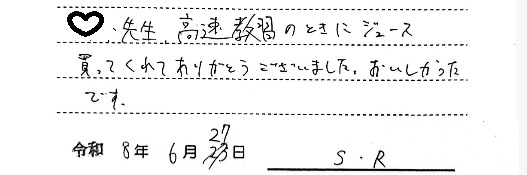 ♡、先生、高速教習のときにジュース
買ってくれてありがとうございました。おいしかった
です。
令和 8年 6月 27日
S・R